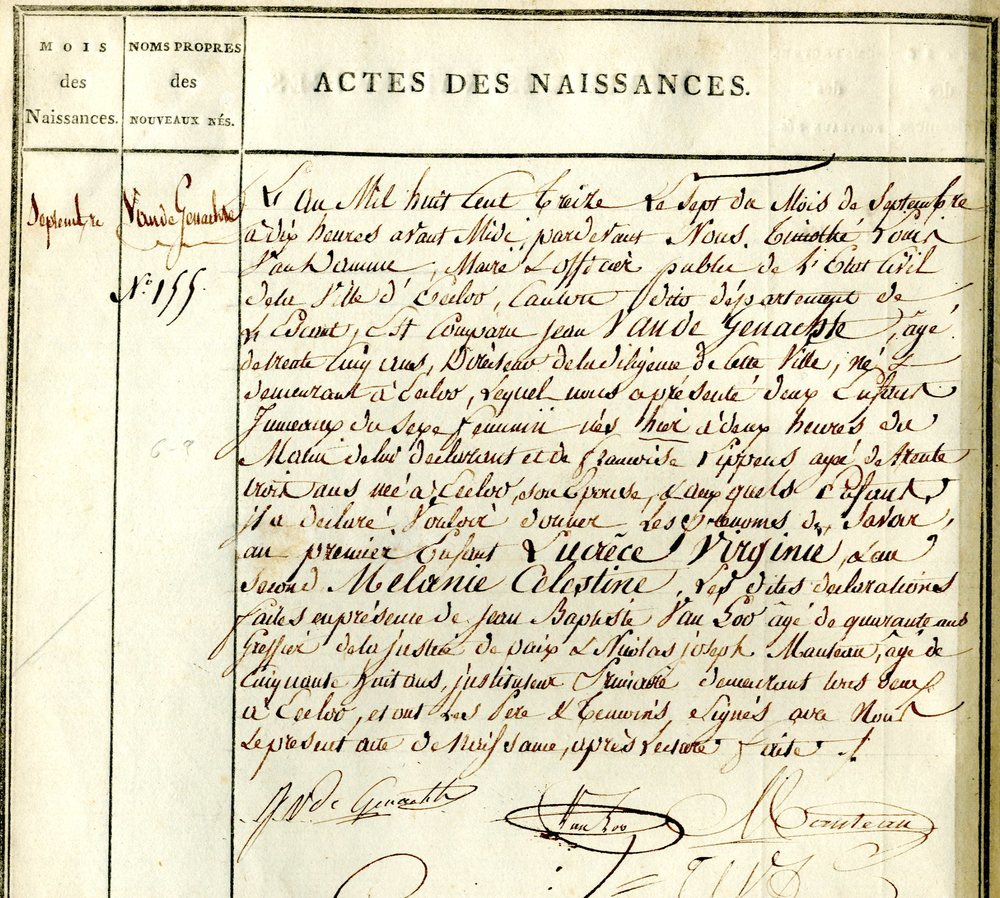 MOIS
des
Naissances.
NOMS PROPRES
des
NOUVEAUX NÉS.
ACTES DES NAISSANCES.
Septembre
Van de Genachte
N.º 155.
L'an Mil huit Cent Treize Le Sept du Mois de Septembre
à dix heures avant Midi, pardevant Nous, Timothé Louis
Van Damme, Maire & officier public de l'Etat Civil
dela Ville d'Eecloo, Canton dito département de
L'Escaut, Est Comparu Jean Van de Genachte, âgé
de trente Cinq ans, Directeur dela diligence de Cette Ville, né &
demeurant à Eecloo, Lequel nous a présenté deux Enfants
Jumeaux du Sexe feminin nés hier à deux heures du
Matin delui déclarant et de françoise agée de trente
trois ans née à Eecloo, son Epouse, & aux quels Enfants
il a déclaré Vouloir donner Les prenoms de Savoir,
au premier Enfant Lucrèce Virginie, & au
Second Melanie Celestine, Les dites déclarations
faites en présence de Jean Baptiste Van Loo âgé de quarante ans
Greffier dela justice de paix & Nicolas joseph Manteau, âgé de
Cinquante huit ans, jnstituteur Primaire demeurant tous deux
à Eecloo, et ont Les Père & temoins signés avec Nous
Le présent acte de Naissance, après Lecture faite ./.
J V de Genachte
Van Loo
Manteau